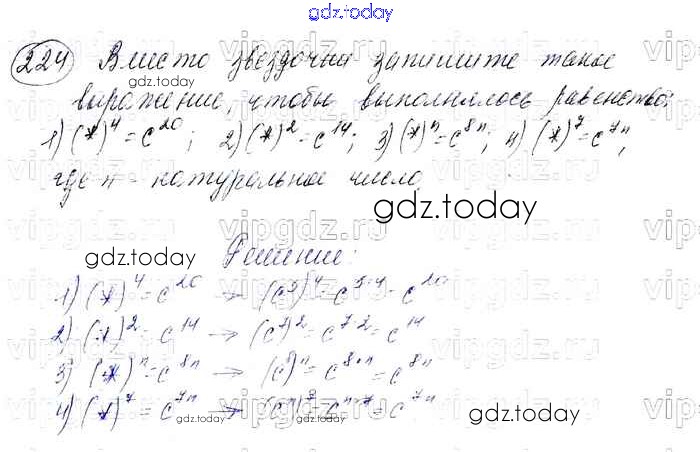 gdz.today
224 Вместо звездочки запишите такое
gdz.today
выражение, чтобы выполнялось равенство:
1) (*)^4 = c^20; 2) (*)^2 = c^14; 3) (*)^n = c^8n; 4) (*)^7 = c^7n,
где n - натуральное число.
gdz.today
Решение:
gdz.today
1) (*)^4 = c^20 → (c^5)^4 = c^5·4 = c^20
2) (*)^2 = c^14 → (c^7)^2 = c^7·2 = c^14
3) (*)^n = c^8n → (c^8)^n = c^8·n = c^8n
4) (*)^7 = c^7n → (c^n)^7 = c^n·7 = c^7n
gdz.today gdz.today gdz.today
vipgdz.ru